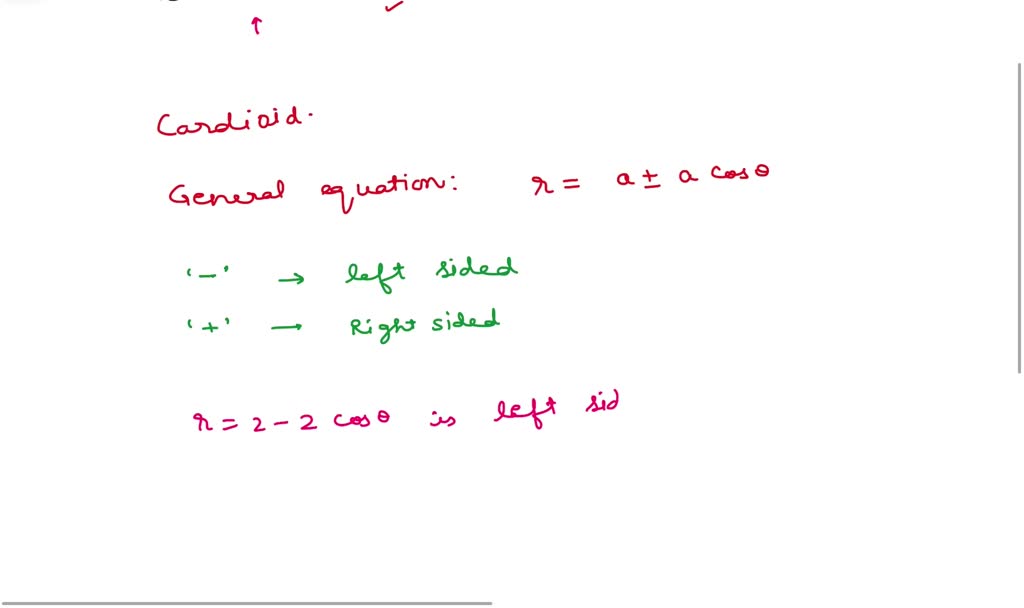 Cardioid.
General equation: r = a ± a cosθ
'-' → left sided
'+' → Right sided
r = 2 - 2 cosθ is left sid